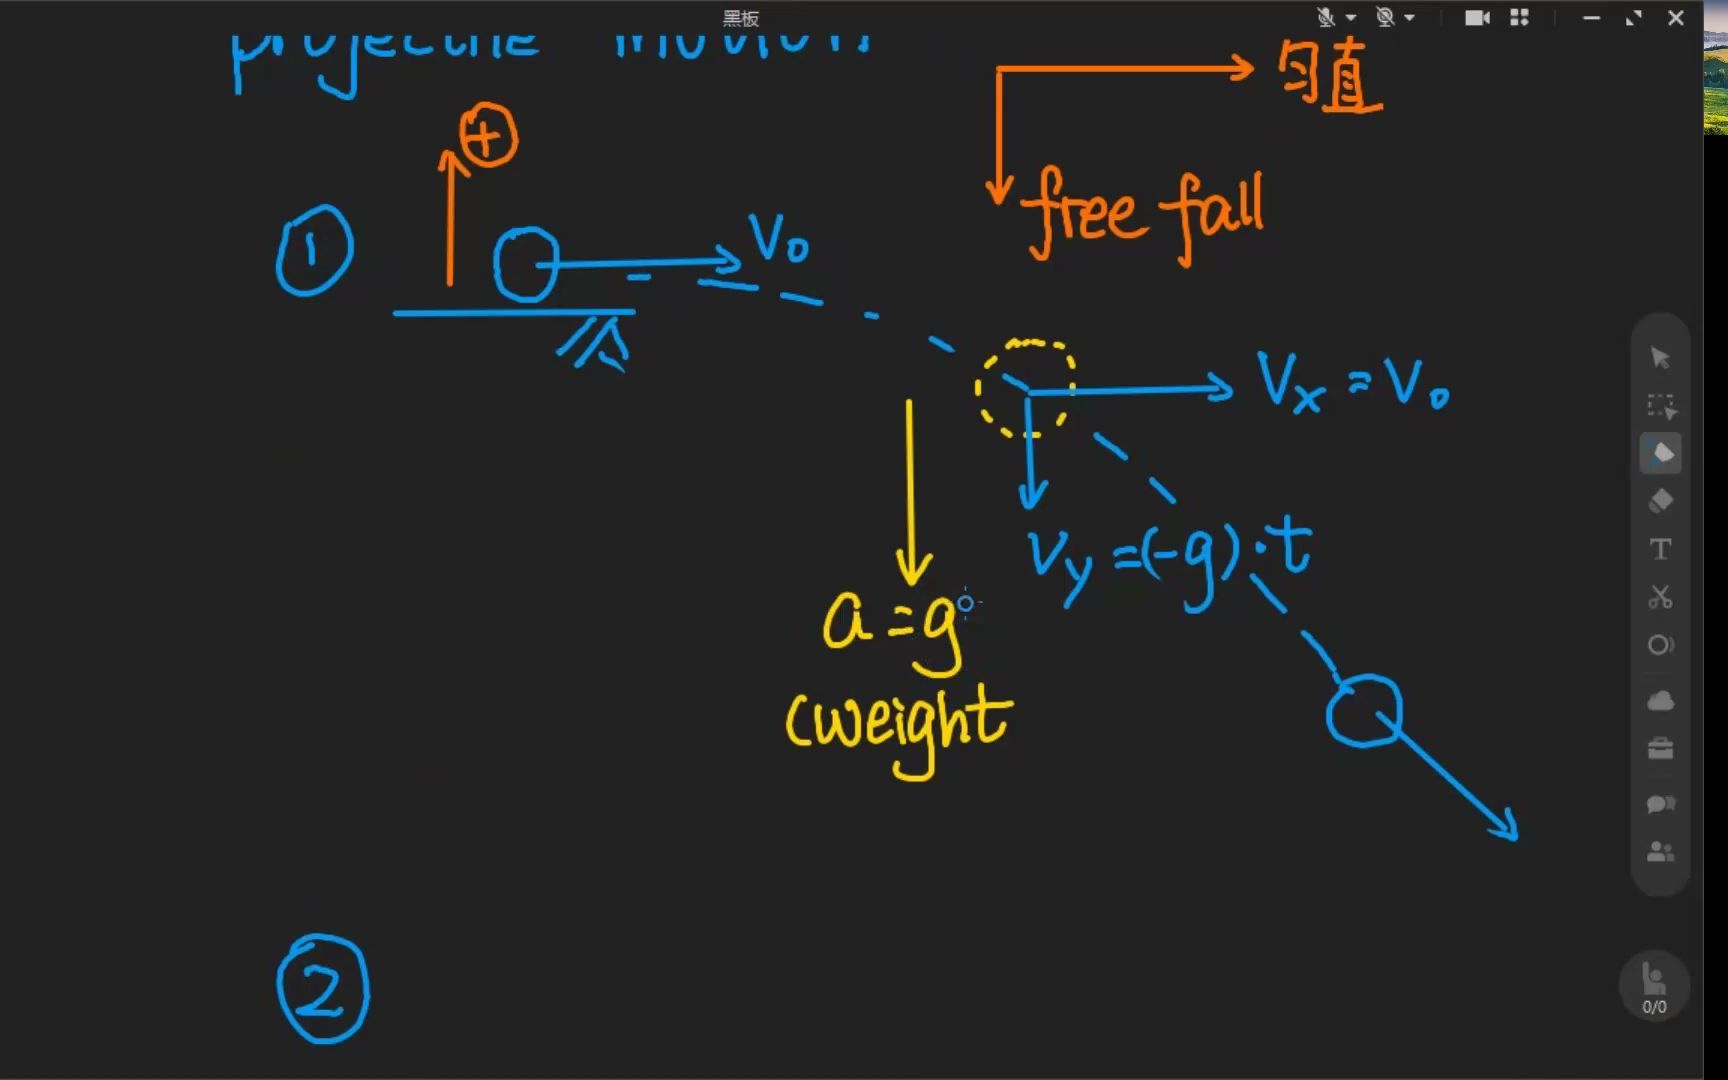 黑板
projectile motion
匀直
+
free fall
1
V₀
Vx = V₀
Vy = (-g)·t
a = g
(weight
2
T
0/0